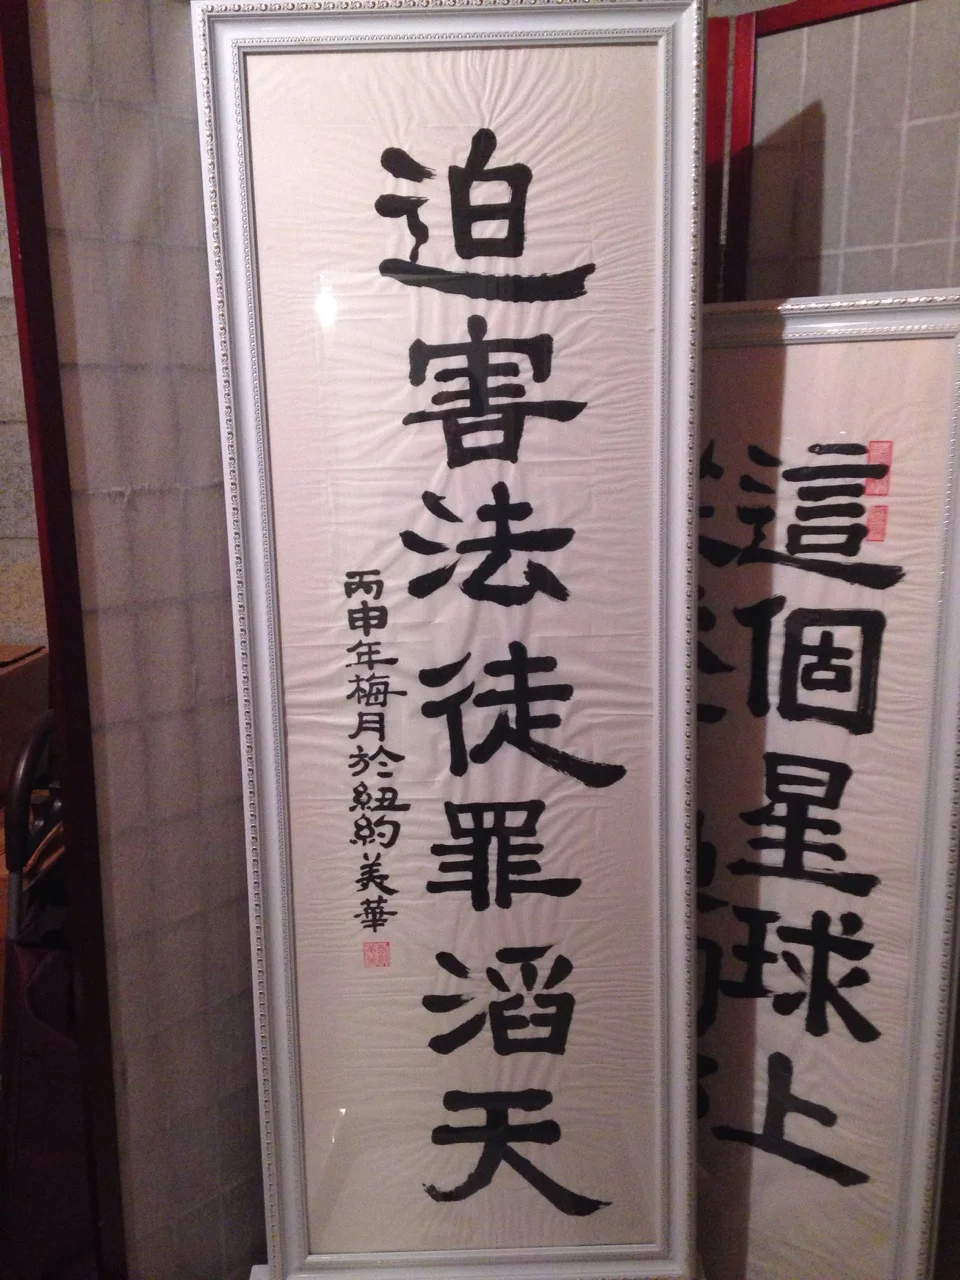 迫害法徒罪滔天
丙申年梅月於紐約美華
這個星球上